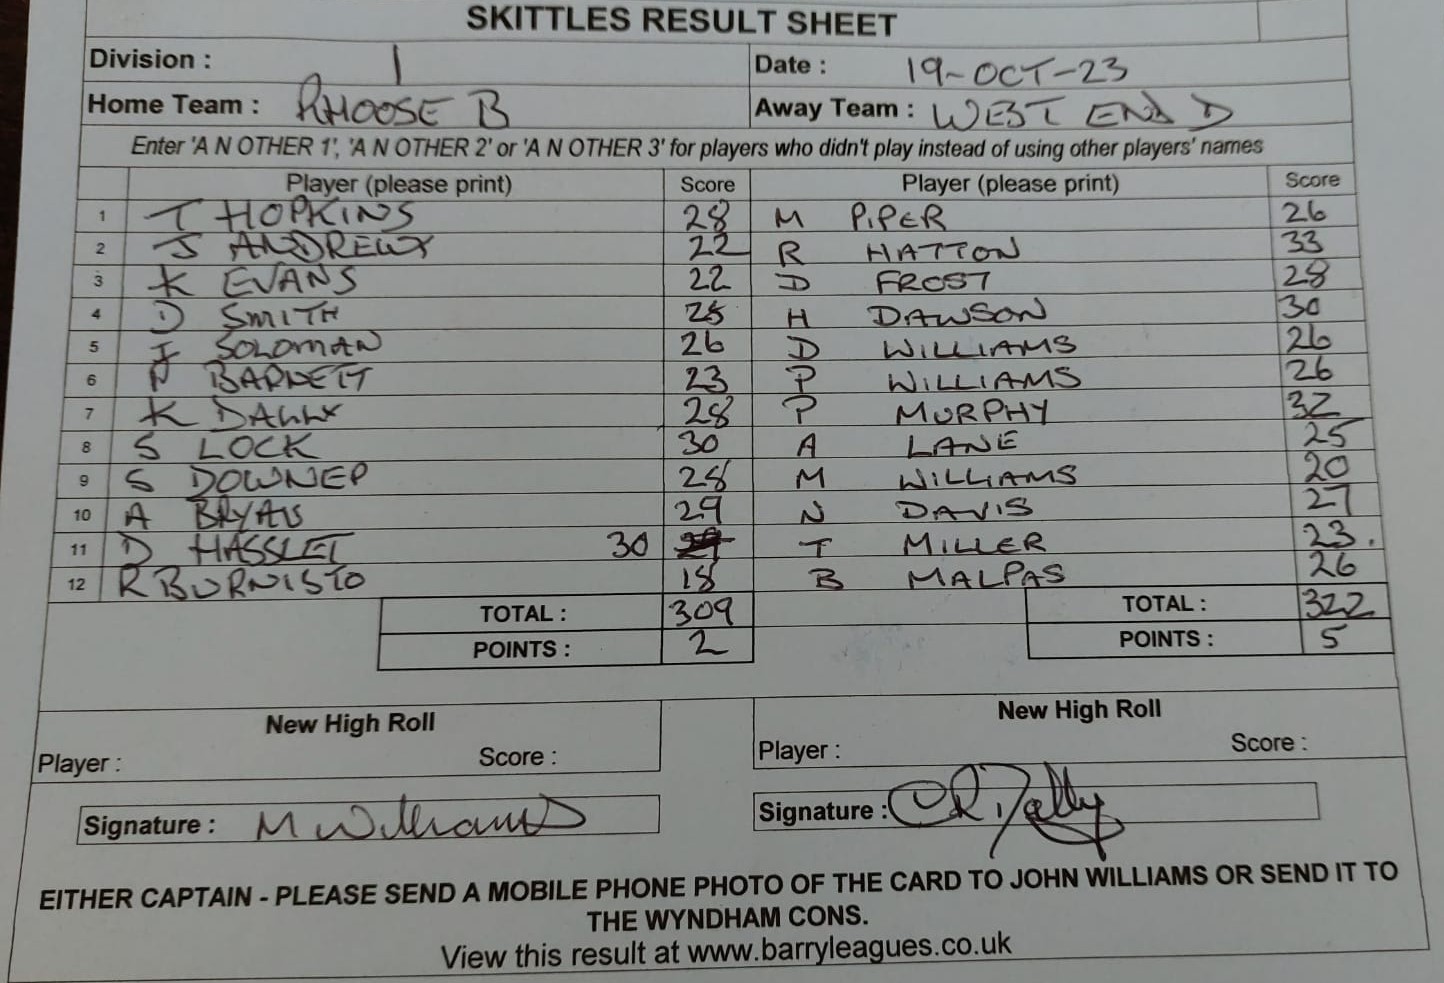 SKITTLES RESULT SHEET
Division : 1 Date : 19-OCT-23
Home Team : RHOOSE B Away Team : WEST END D
Enter 'A N OTHER 1', 'A N OTHER 2' or 'A N OTHER 3' for players who didn't play instead of using other players' names
Player (please print) Score Player (please print) Score
1 T HOPKINS 28 M PIPER 26
2 J ANDREWS 22 R HATTON 33
3 K EVANS 22 D FROST 28
4 D SMITH 25 H DAWSON 30
5 J SOLOMAN 26 D WILLIAMS 26
6 N BARNETT 23 P WILLIAMS 26
7 K DALLY 28 P MURPHY 32
8 S LOCK 30 A LANE 25
9 S DOWNEP 28 M WILLIAMS 20
10 A BRYAN 29 N DAVIS 27
11 D HASSLET 30 T MILLER 23.
12 R BURNISTO 18 B MALPAS 26
TOTAL : 309 TOTAL : 322
POINTS : 2 POINTS : 5
New High Roll New High Roll
Player : Score : Player : Score :
Signature : M Williams Signature : R Dally
EITHER CAPTAIN - PLEASE SEND A MOBILE PHONE PHOTO OF THE CARD TO JOHN WILLIAMS OR SEND IT TO
THE WYNDHAM CONS.
View this result at www.barryleagues.co.uk